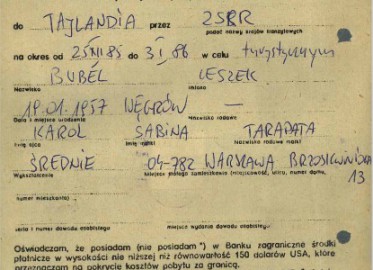 do TAJLANDIA przez ZSRR
podać nazwy krajów tranzytowych
na okres od 25 XII 85 do 3 I 86 w celu turystycznym
BUBEL LESZEK
Nazwisko Imiona
19.01.1957 WĘGRÓW —
Data i miejsce urodzenia Nazwisko rodowe
KAROL SABINA TARAPATA
Imię ojca Imię matki Nazwisko rodowe matki
ŚREDNIE 04-782 WARSZAWA BRZOSKWINIOWA
13
Wykształcenie Miejsce stałego zamieszkania (miejscowość, ulica, numer domu,
numer mieszkania)
seria i numer dowodu osobistego miejsce wydania dowodu osobistego
Oświadczam, że posiadam (nie posiadam*) w Banku zagraniczne środki
płatnicze w wysokości nie niższej niż równowartość 150 dolarów USA, które
przeznaczam na pokrycie kosztów pobytu za granicą.